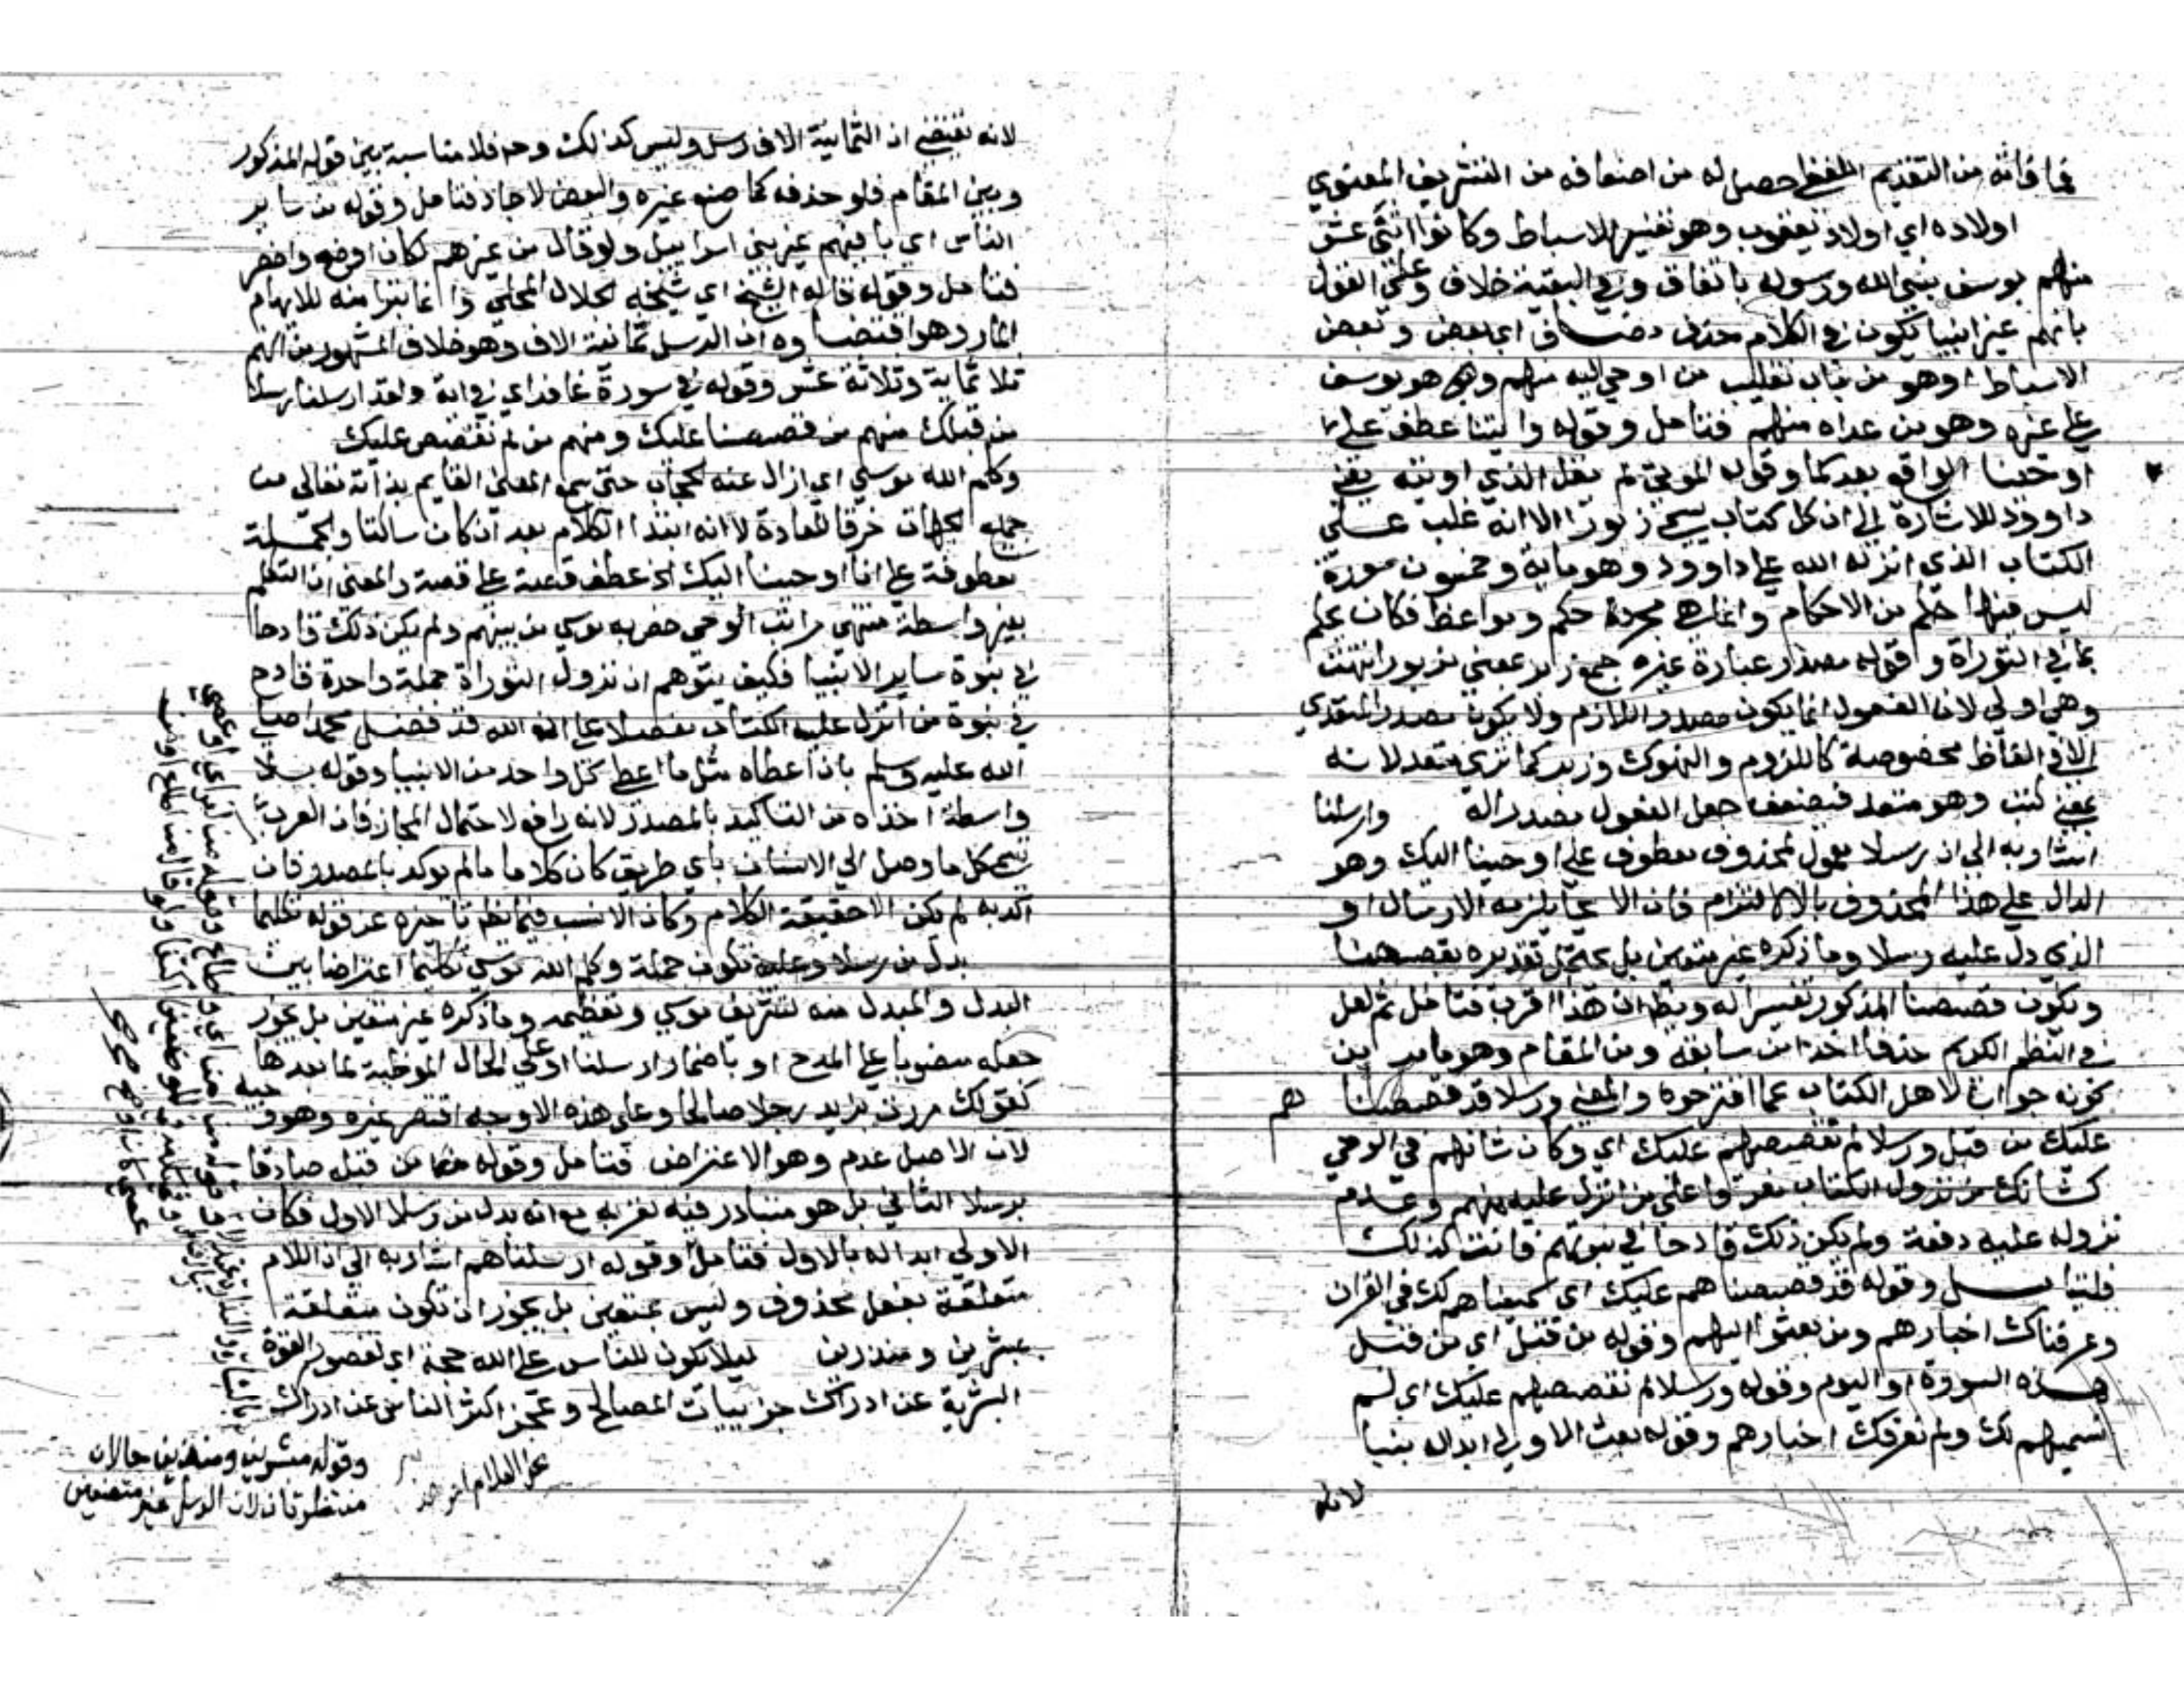 فما فاته من التقديم اللفظي حصل له من اضعافه من التشريف المعنوي
اولاده اي اولاد يعقوب وهو تفسير للاسباط وكانوا اثني عشر
منهم يوسف نبي الله ورسوله باتفاق وفي البقية خلاف وعلي القول
بانهم غير انبيا يكون في الكلام حذف مضاف اي بعض وبعض
الاسباط او هو من باب تغليب من اوحي اليه منهم وهو يوسف
علي غيره وهو من عداه منهم فتامل وقوله واتينا عطف علي
اوحينا الواقع بعد كما وقوله الموتي لم يقل الذي اوتيه يعني
داوود للاشارة الي ان كل كتاب يسمي زبورا الا انه غلب علي
الكتاب الذي انزله الله علي داوود وهو ماية وخمسون سورة
ليس فيها حكم من الاحكام وانما هي مجردة حكم ومواعظ فكان يحكم
بما في التوراة وقوله مصدر عبارة غيره جمع زبر بمعني مزبور انتهت
وهي اولي لان الفعول انما يكون مصدر اللازم ولا يكون مصدر المتعدي
الا في الفاظ مخصوصة كاللزوم والنهوك وزبر كما تري متعد لانه
بمعني كتب وهو متعد فيضعف جعل الفعول مصدرا له وارسلنا
اشار به الي ان رسلا معمول لمحذوف معطوف علي اوحينا اليك وهو
الدال علي هذا المحذوف بالالتزام فان الايحا يلزمه الارسال او
الذي دل عليه رسلا وما ذكره غير متعين بل يحتمل تقديره بقصصنا
ويكون قصصنا المذكور تفسيرا له ويظهر ان هذا اقرب فتامل ثم لعل
في النظم الكريم حذفا اخذا من سابقه ومن المقام وهو مامر من
كونه جوابا لاهل الكتاب عما اقترحوه والمعني ورسلا قد قصصناهم
عليك من قبل ورسلا لم نقصصهم عليك اي وكان شانهم في الوحي
كشانك من نزول الكتاب مفرقا علي من انزل عليه منهم وعدم
نزوله عليه دفعة ولم يكن ذلك قادحا في نبوتهم فانت كذلك
فليتامل وقوله قد قصصناهم عليك اي سميناهم لك في القران
وعرفناك اخبارهم ومن بعثوا اليهم وقوله من قبل اي من قبل
هذه السورة او اليوم وقوله ورسلا لم نقصصهم عليك اي لم
نسميهم لك ولم نعرفك اخبارهم وقوله بعث الاولي ابداله بنبيا
لانه
لانه يقتضي ان الثمانية الاف رسل وليس كذلك وح فلا مناسبة بين قوله المذكور
وبين المقام فلو حذفه كما صنع غيره والبعض لاجاد فتامل وقوله من ساير
الناس اي باقيهم غير بني اسراييل ولو قال من غيرهم لكان اوضح واخصر
فتامل وقوله قاله الشيخ اي شيخه الجلال المحلي وانما تبرا منه للابهام
المار وهو اقتضاوه ان الرسل ثمانية الاف وهو خلاف المشهور من انهم
ثلاثماية وثلاثة عشر وقوله في سورة غافر اي في اية ولقد ارسلنا رسلا
من قبلك منهم من قصصنا عليك ومنهم من لم نقصص عليك
وكلم الله موسي اي ازال عنه الحجاب حتي سمع المعني القايم بذاته تعالي من
جميع الجهات خرقا للعادة لا انه ابتدا الكلام بعد ان كان ساكتا والجملة
معطوفة علي انا اوحينا اليك الخ عطف قصة علي قصة والمعني ان التكلم
بغير واسطة منتهي مراتب الوحي خص به موسي من بينهم ولم يكن ذلك قادحا
في نبوة ساير الانبيا فكيف يتوهم ان نزول التوراة جملة واحدة قادح
في نبوة من انزل عليه الكتاب مفصلا علي انه الله قد فضل محمدا صلي
الله عليه وسلم بان اعطاه مثل ما اعطي كل واحد من الانبيا وقوله بلا
واسطة اخذه من التاكيد بالمصدر لانه رافع لاحتمال المجاز فان العرب
تسمي كل ما وصل الي الانسان باي طريق كان كلاما ما لم يوكد بالمصدر فان
اكد به لم يكن الا حقيقة الكلام وكان الانسب فيما يظهر تاخيره عن قوله تكليما
بدل من رسلا وعليه تكون جملة وكلم الله موسي تكليما اعتراضا بين
البدل والمبدل منه لتشريف موسي وتعظيمه وما ذكره غير متعين بل يجوز
جعله منصوبا علي المدح او باضمار ارسلنا او علي الحال الموطية لما بعدها
كقولك مررت بزيد رجلا صالحا وعلي هذه الاوجه اقتصر غيره وهو وجيه
لان الاصل عدم وهو الاعتراض فتامل وقوله من قبل صادقا
برسلا الثاني بل هو متبادر فيه لقربه مع انه بدل من رسلا الاول فكان
الاولي ابداله بالاول فتامل وقوله ارسلناهم اشار به الي ان اللام
متعلقة بفعل محذوف وليس بمتعين بل يجوز ان تكون متعلقة
بمبشرين ومنذرين ليلا يكون للناس علي الله حجة اي لقصور القوة
البشرية عن ادراك جزييات المصالح وعجز اكثر الناس عن ادراك
وقوله مبشرين ومنذرين حالان
منتظرتان لان الرسل غير متصفين